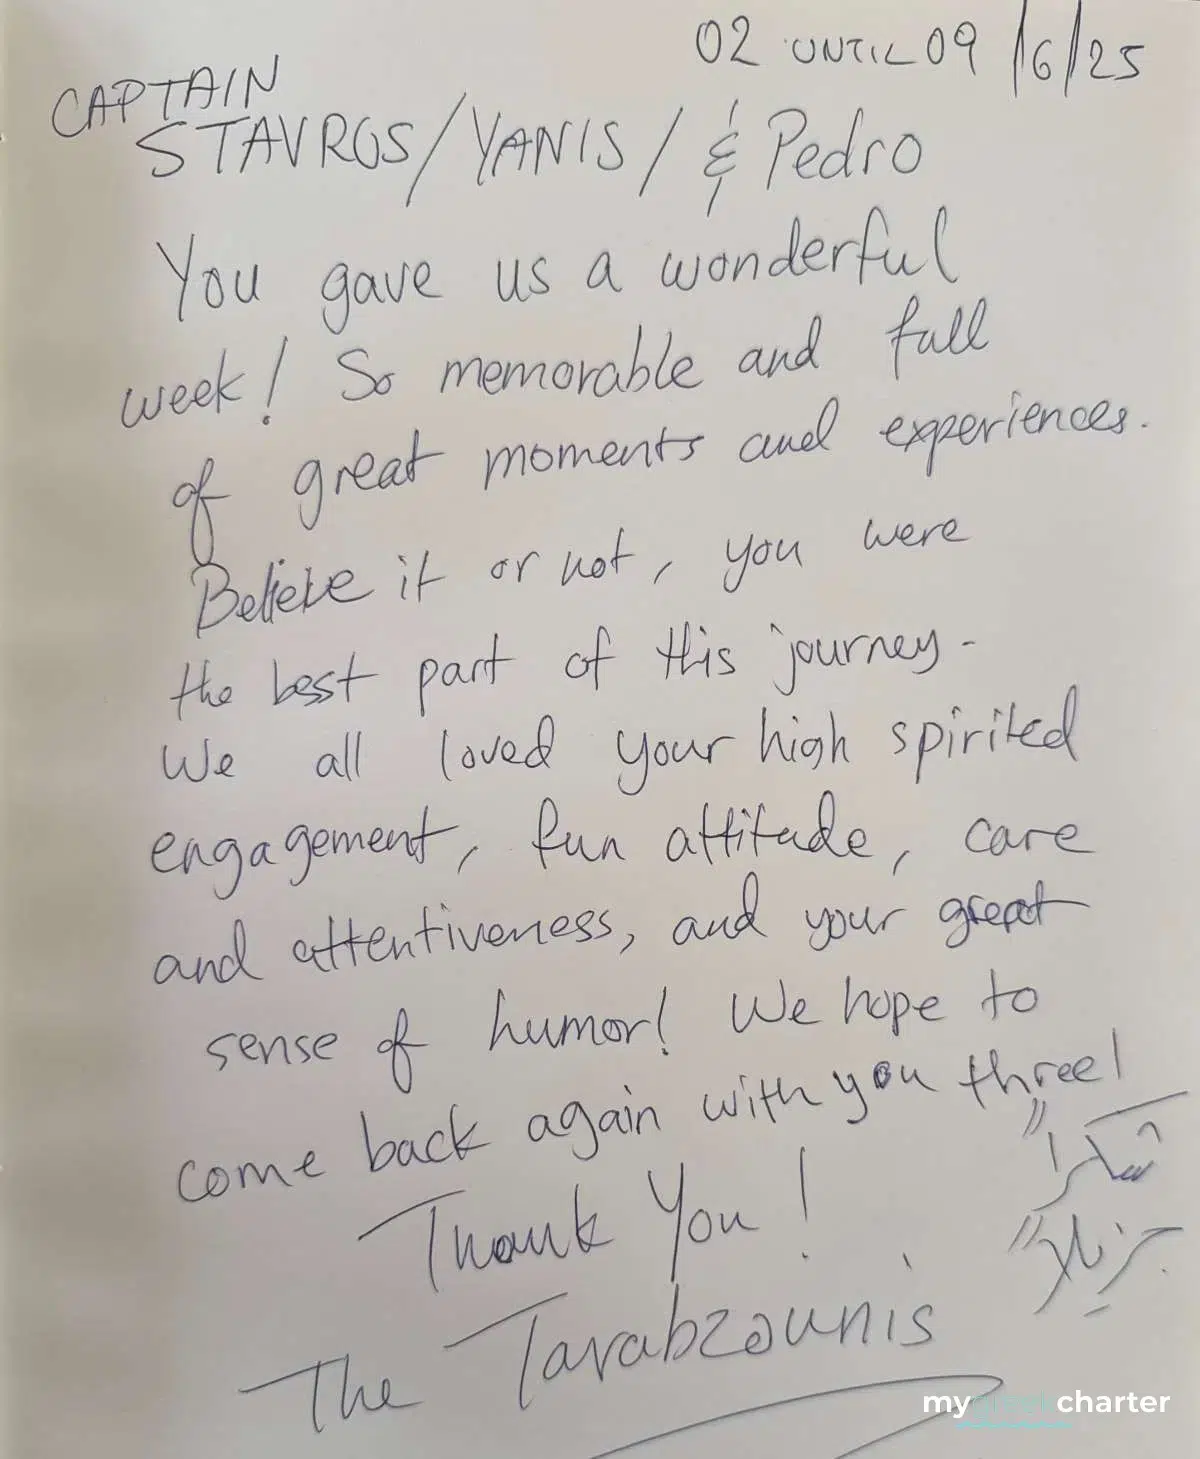 02 UNTIL 09/6/25
CAPTAIN
STAVROS/YANIS/ & Pedro
You gave us a wonderful
week! So memorable and full
of great moments and experiences.
Believe it or not, you were
the best part of this journey.
We all loved your high spirited
engagement, fun attitude, care
and attentiveness, and your great
sense of humor! We hope to
come back again with you three!
شكراً
جزيلاً
Thank You!
The Tarabzounis
mygreekcharter